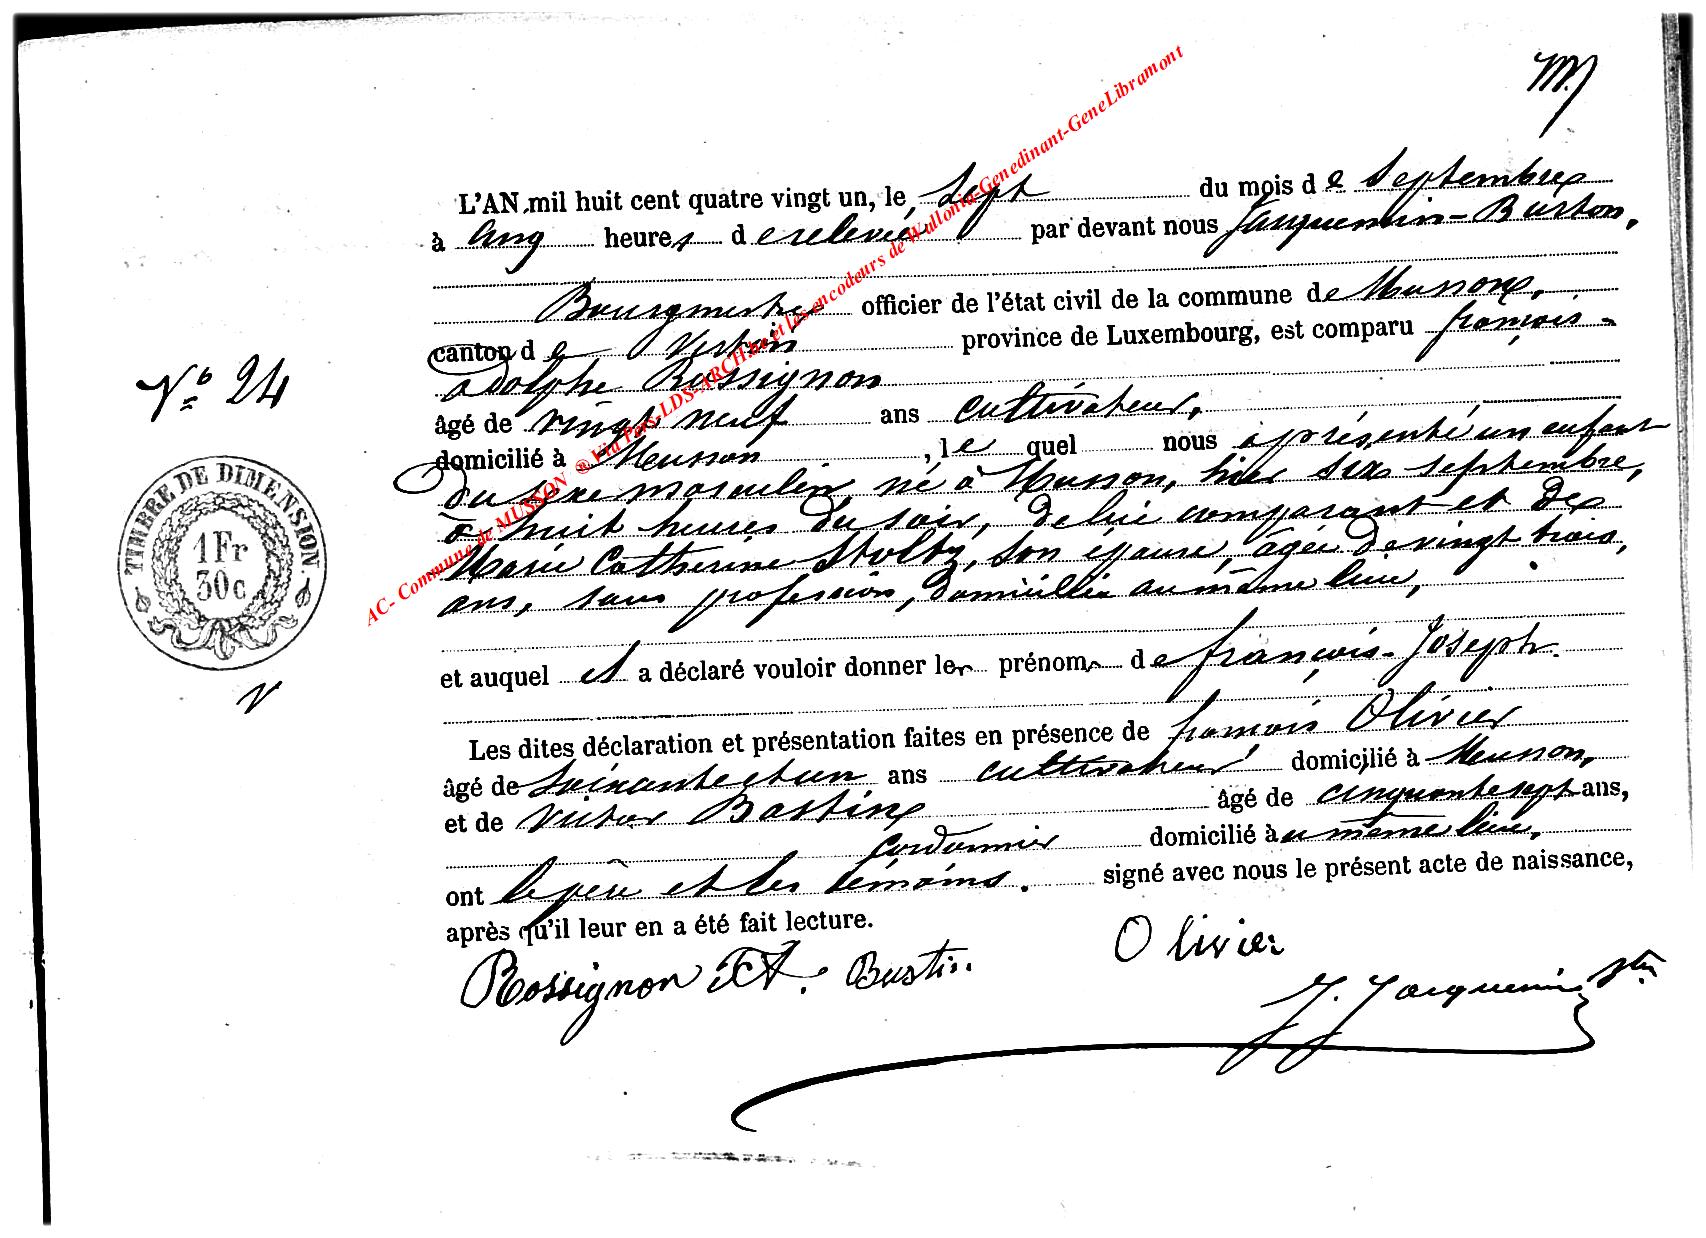 L'AN mil huit cent quatre vingt un, le sept du mois de Septembre
à cinq heures de relevée par devant nous Jacquemin-Burton,
Bourgmestre officier de l'état civil de la commune de Musson,
canton de Virton province de Luxembourg, est comparu françois-
adolphe Rossignon
âgé de vingt neuf ans cultivateur,
domicilié à Musson, lequel nous a présenté un enfant
du sexe masculin, né à Musson, hier six septembre,
à huit heures du soir, de lui comparant et de
Marie Catherine Stoltz, son épouse, agée de vingt trois
ans, sans profession, domiciliée au même lieu,
et auquel il a déclaré vouloir donner les prénoms de françois-Joseph.
Les dites déclaration et présentation faites en présence de françois Olivier
âgé de soixante et un ans cultivateur domicilié à Musson,
et de Victor Bastin âgé de cinquante sept ans,
cordonnier domicilié au même lieu,
ont le père et les témoins. signé avec nous le présent acte de naissance,
après qu'il leur en a été fait lecture.
Rossignon F A. Bastin. Olivier
J. Jacquemin
N° 24
TIMBRE DE DIMENSION
1 Fr
30c
AC- Commune de MUSSON ® Via Pers-LDS-ARCH.be et les encodeurs de Wullonia-Genedinant-GeneLibramont